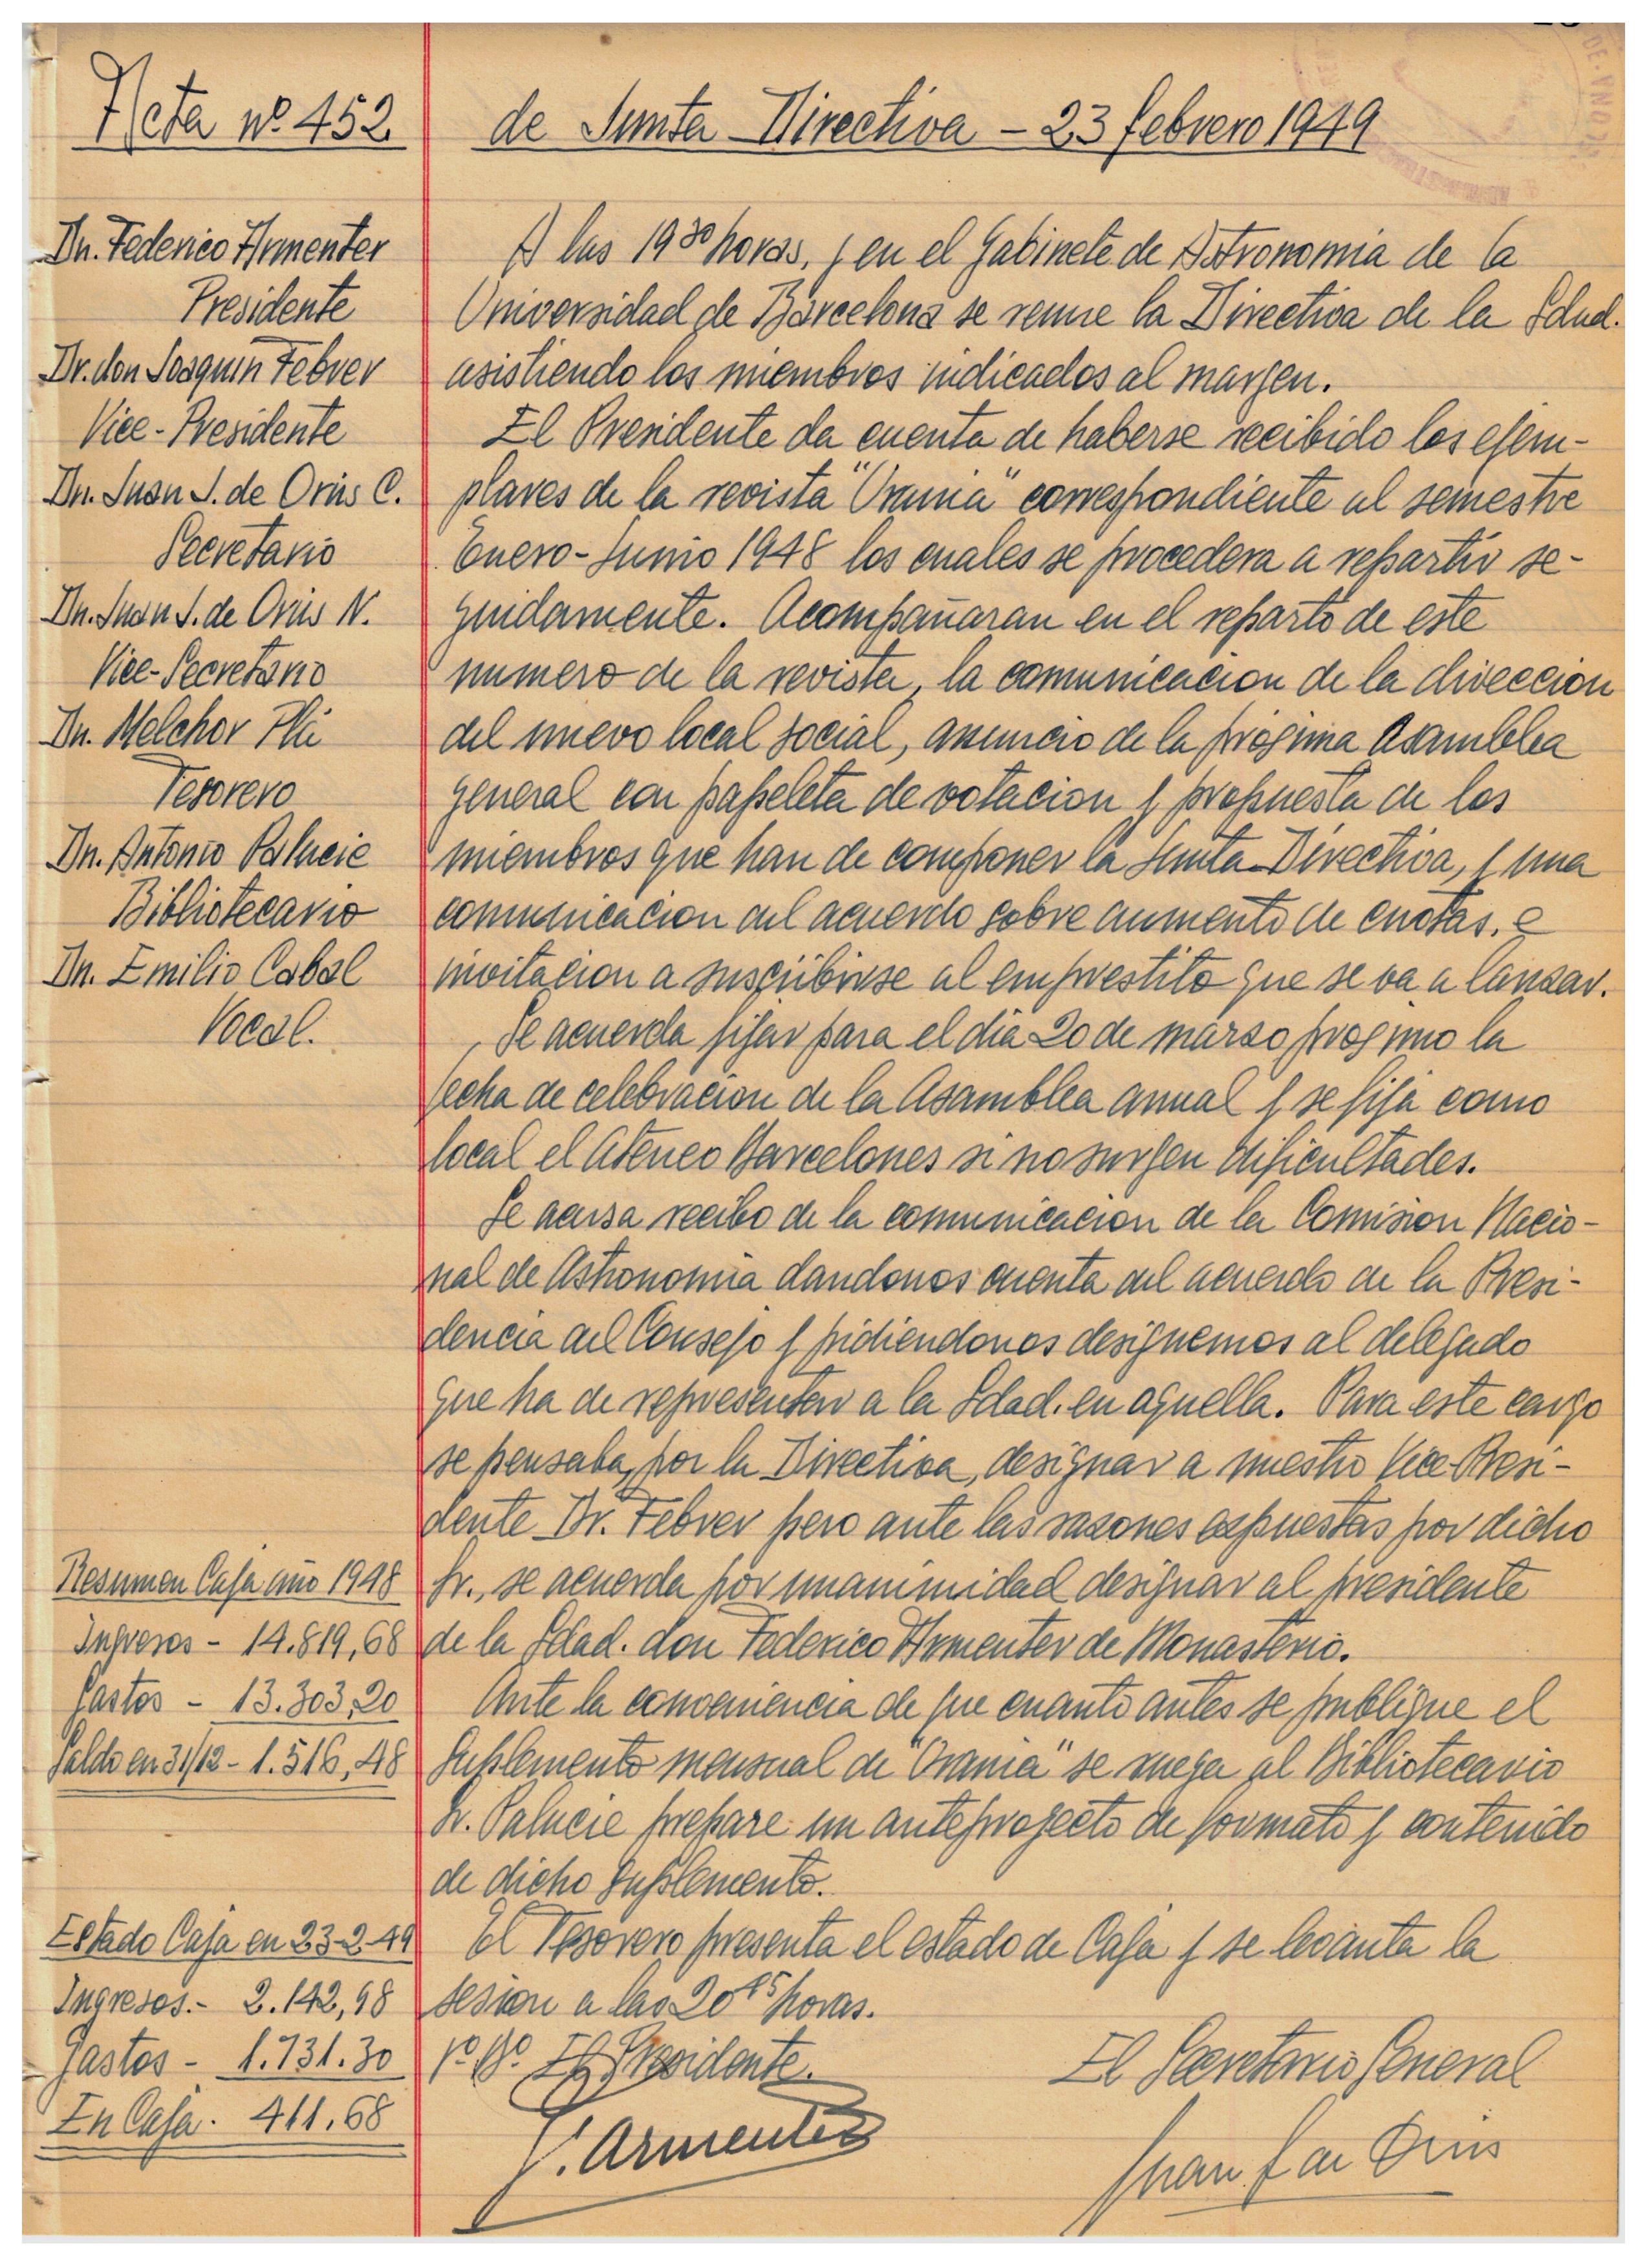 Acta nº 452
de Junta Directiva - 23 febrero 1949
Dn. Federico Armenter
Presidente
Dr. don Joaquin Febrer
Vice-Presidente
Dn. Juan J. de Orús C.
Secretario
Dn. Juan J. de Orús N.
Vice-Secretario
Dn. Melchor Plá
Tesorero
Dn. Antonio Paluzie
Bibliotecario
Dn. Emilio Cabal
Vocal.
A las 19³⁰ horas, y en el Gabinete de Astronomia de la
Universidad de Barcelona se reune la Directiva de la Sdad.
asistiendo los miembros indicados al margen.
El Presidente da cuenta de haberse recibido los ejem-
plares de la revista "Urania" correspondiente al semestre
Enero-Junio 1948 los cuales se procedera a repartir se-
guidamente. Acompañaran en el reparto de este
numero de la revista, la comunicacion de la direccion
del nuevo local social, anuncio de la proxima Asamblea
general con papeleta de votacion y propuesta de los
miembros que han de componer la Junta Directiva, y una
comunicacion del acuerdo sobre aumento de cuotas, e
invitacion a suscribirse al emprestito que se va a lanzar.
Se acuerda fijar para el dia 20 de marzo proximo la
fecha de celebracion de la Asamblea anual y se fija como
local el Ateneo Barcelones si no surgen dificultades.
Se acusa recibo de la comunicacion de la Comision Nacio-
nal de Astronomia dandonos cuenta del acuerdo de la Presi-
dencia del Consejo y pidiendonos designemos al delegado
que ha de representar a la Sdad. en aquella. Para este cargo
se pensaba, por la Directiva, designar a nuestro Vice-Presi-
dente Dr. Febrer pero ante las razones expuestas por dicho
Sr., se acuerda por unanimidad designar al presidente
de la Sdad. don Federico Armenter de Monasterio.
Ante la conveniencia de que cuanto antes se publique el
Suplemento mensual de "Urania" se ruega al Bibliotecario
Sr. Paluzie prepare un anteproyecto de formato y contenido
de dicho Suplemento.
El Tesorero presenta el estado de Caja y se levanta la
sesion a las 20⁴⁵ horas.
Resumen Caja año 1948
Ingresos - 14.819,68
Gastos - 13.303,20
Saldo en 31/12 - 1.516,48
Estado Caja en 23-2-49
Ingresos.- 2.142,98
Gastos - 1.731.30
En Caja. 411.68
Vº Bº El Presidente.
El Secretario General
F. Armenter
Juan J de Orús